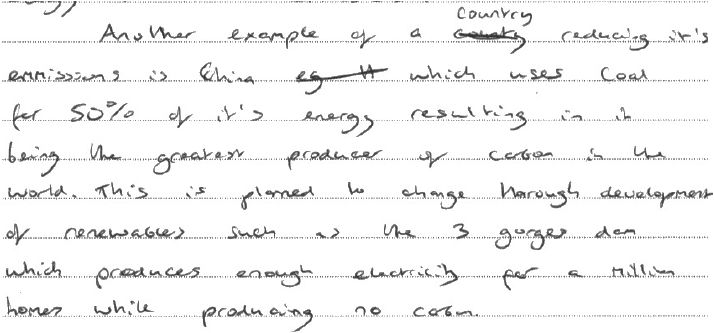 Country
Another example of a reducing it's
emmissions is China which uses Coal
for 50% of it's energy resulting in it
being the greatest producer of carbon in the
world. This is planned to change thorough development
of renewables such as the 3 gorges dam
which produces enough electricity for a million
homes while producing no carbon.